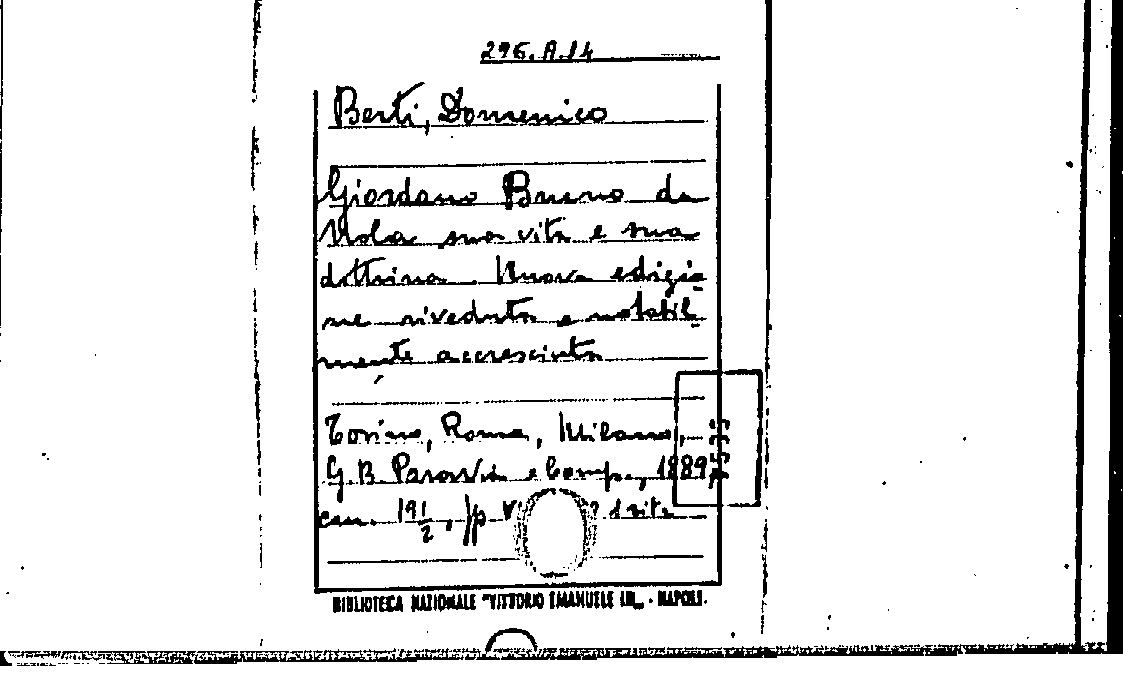 296.A.14
Berti, Domenico
Giordano Bruno da
Nola sua vita e sua
dottrina. Nuova edizio
ne riveduta e notabil-
mente accresciuta
Torino, Roma, Milano,
G.B. Paravia e Comp., 1889
cm. 19 1/2, pp VI
BIBLIOTECA NAZIONALE "VITTORIO EMANUELE III„ - NAPOLI.